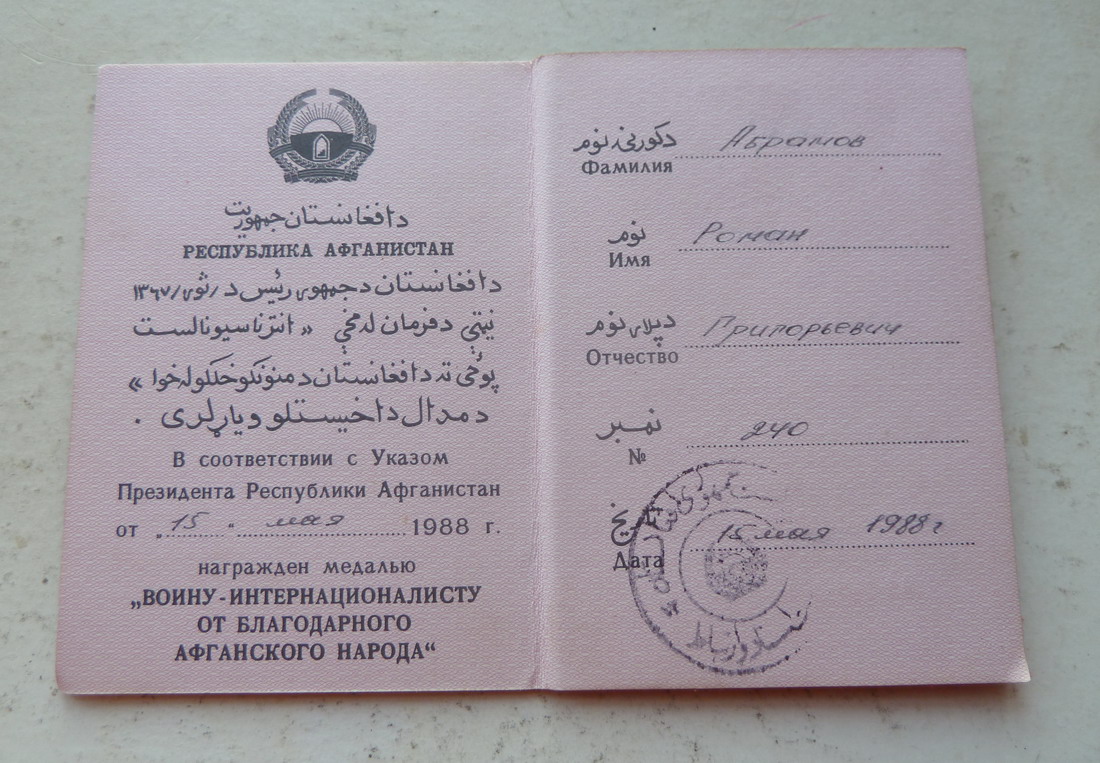 د افغانستان جمهوریت
РЕСПУБЛИКА АФГАНИСТАН
د افغانستان د جمهوری رئیس د / ثور / ۱۳۶۷
نیټې د فرمان له مخې « انترناسیونالست
پوځی ته د افغانستان د منونکو خلکو له خوا »
د مدال د اخیستلو ویاړ لری .
В соответствии с Указом
Президента Республики Афганистан
от „ 15 “ мая 1988 г.
награжден медалью
„ВОИНУ-ИНТЕРНАЦИОНАЛИСТУ
ОТ БЛАГОДАРНОГО
АФГАНСКОГО НАРОДА“
د کورنۍ نوم
Фамилия Абрамов
نوم
Имя Роман
د پلار نوم
Отчество Григорьевич
نمبر
№ 240
تاریخ
Дата 15 мая 1988 г